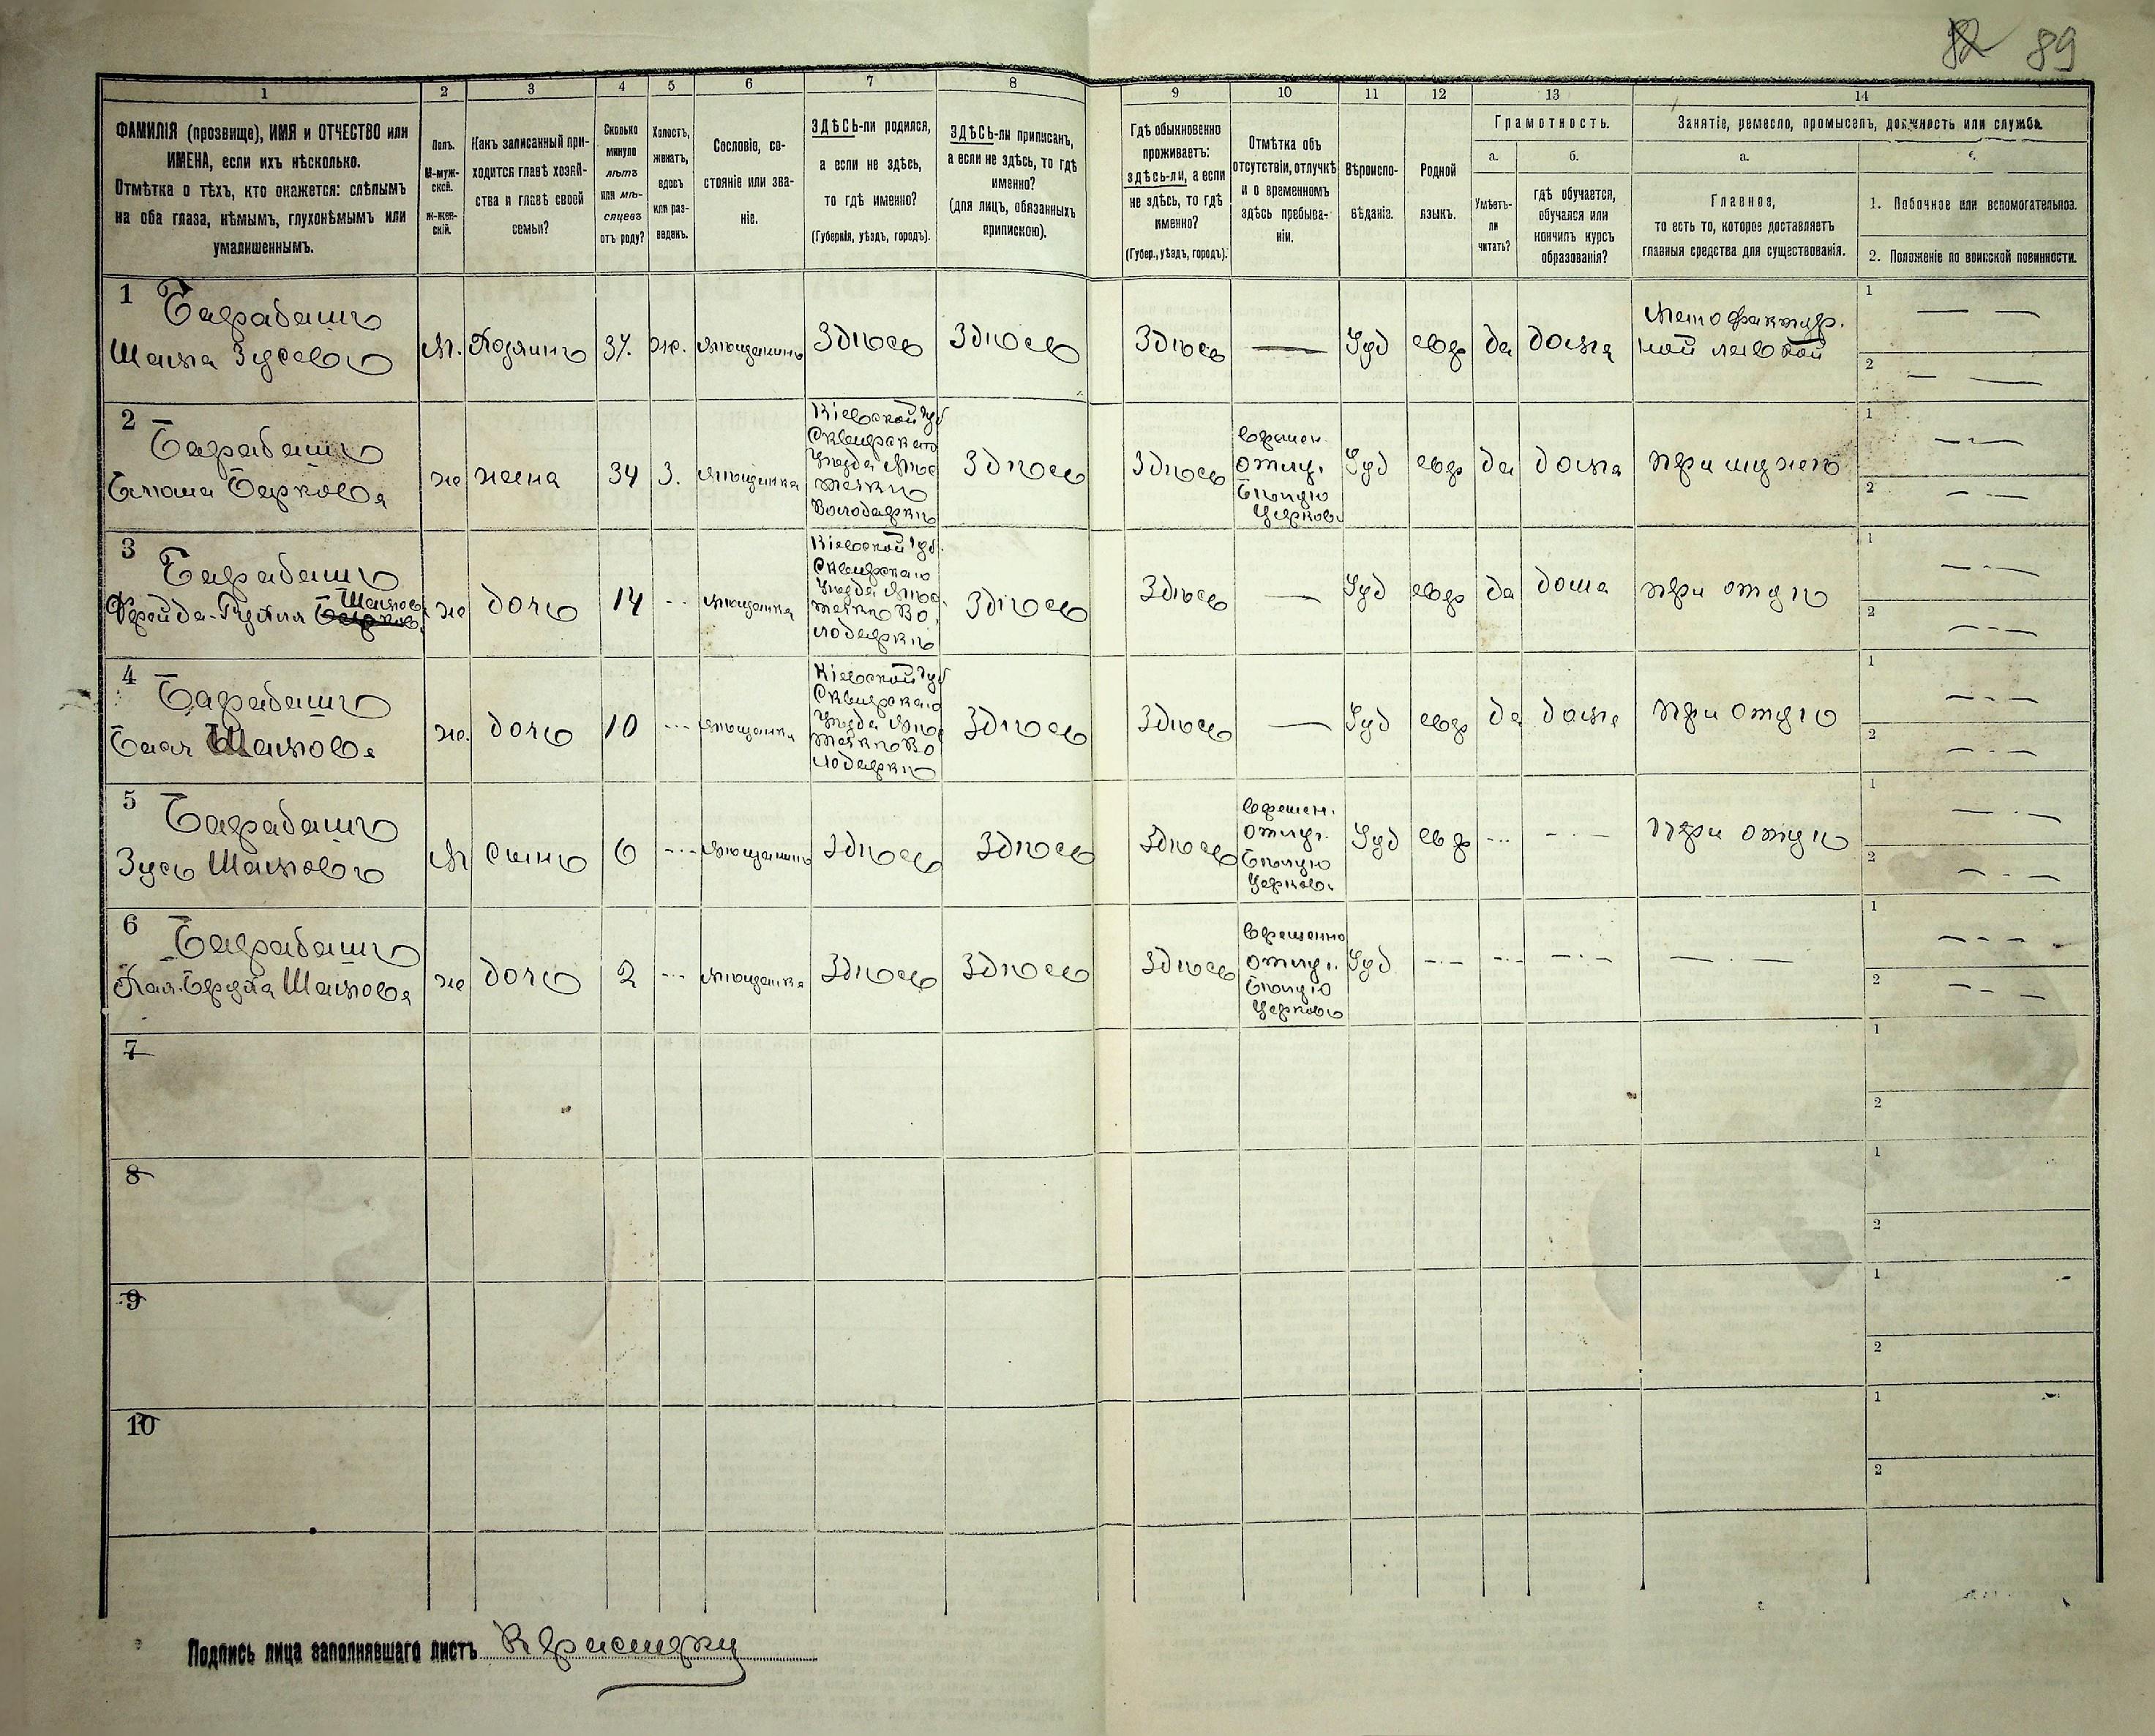 82 89
1 2 3 4 5 6 7 8 9 10 11 12 13 14
ФАМИЛІЯ (прозвище), ИМЯ и ОТЧЕСТВО или
ИМЕНА, если ихъ нѣсколько.
Отмѣтка о тѣхъ, кто окажется: слѣпымъ
на оба глаза, нѣмымъ, глухонѣмымъ или
умалишеннымъ.
Полъ.
М-муж-
ской.
ж-жен-
скій.
Какъ записанный при-
ходится главѣ хозяй-
ства и главѣ своей
семьи?
Сколько
минуло
лѣтъ
или мѣ-
сяцевъ
отъ роду?
Холостъ,
женатъ,
вдовъ
или раз-
веденъ.
Сословіе, со-
стояніе или зва-
ніе.
ЗДѢСЬ-ли родился,
а если не здѣсь,
то гдѣ именно?
(Губернія, уѣздъ, городъ).
ЗДѢСЬ-ли приписанъ,
а если не здѣсь, то гдѣ
именно?
(для лицъ, обязанныхъ
припискою).
Гдѣ обыкновенно
проживаетъ:
здѣсь-ли, а если
не здѣсь, то гдѣ
именно?
(Губер., уѣздъ, городъ).
Отмѣтка объ
отсутствіи, отлучкѣ
и о временномъ
здѣсь пребыва-
ніи.
Вѣроиспо-
вѣданіе.
Родной
языкъ.
Грамотность.
а.
Умѣетъ-
ли
читать?
б.
гдѣ обучается,
обучался или
кончилъ курсъ
образованія?
Занятіе, ремесло, промыселъ, должность или служба.
а.
Главное,
то есть то, которое доставляетъ
главныя средства для существованія.
1. Побочное или вспомогательное.
2. Положеніе по воинской повинности.
1 Барабашъ
Шаима Зусевъ
М. Хозяинъ 37. ж. мѣщанинъ Здѣсь Здѣсь Здѣсь — Іуд евр да дома
ной лавкой
1 — —
2 — —
2 Барабашъ
Берковa
же жена 34 З. мѣщанка
Кіевской губ
Сквирскаго
Уѣзда Мѣс
течкѣ
Володаркѣ
Здѣсь Здѣсь
времен.
отлуч.
Бѣлую
Церковь
Іуд евр да дома при мужѣ
1 — - —
2 — - —
3 Барабашъ
Шаимов.
Фрейда-Рухля Берков.
же дочь 14 - - мѣщанка
Кіевской губ.
Сквирскаго
Уѣзда Мѣс.
течкѣ Во
лодаркѣ
Здѣсь Здѣсь — Іуд евр да дома при отцѣ
1 — - —
2 — - —
4 Барабашъ
Шаимова
же. дочь 10 - - - мѣщанка
Кіевской губ
Сквирскаго
Уѣзда Мѣс
течкѣ Во
лодаркѣ
Здѣсь Здѣсь — Іуд евр да дома при отцѣ
1 — - —
2 — - —
5 Барабашъ
Зусь Шаимовъ
М сынъ 6 - - - мѣщанинъ Здѣсь Здѣсь Здѣсь
времен.
отлуч.
Бѣлую
Церковь.
Іуд евр - - - — - — при отцѣ
1 — - —
2 — - —
6 Барабашъ
Шаимова
же дочь 2 - - - мѣщанка Здѣсь Здѣсь Здѣсь
временно
отлуч.
Бѣлую
Церковь
Іуд — - — — - — — - — — - —
1 — - —
2 — - —
7
1
2
8
1
2
9
1
2
10
1
2
Подпись лица заполнявшаго листъ